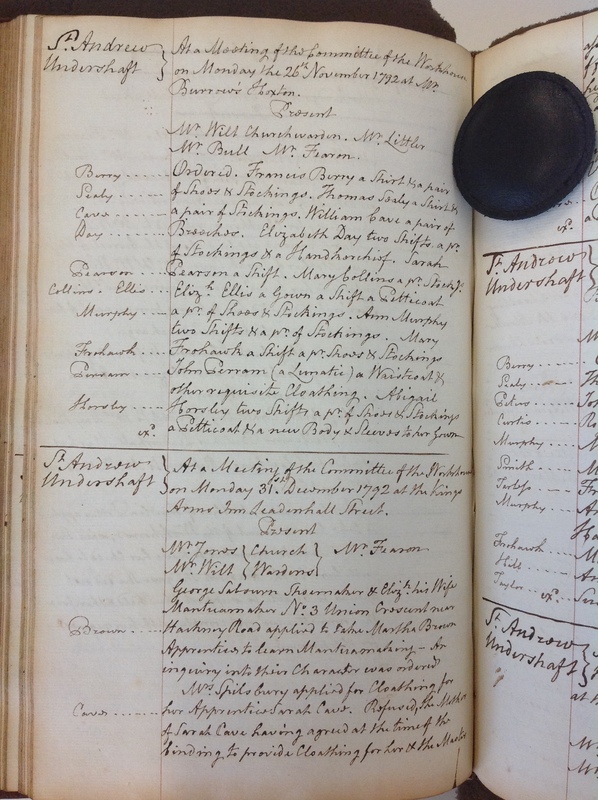 St. Andrew Undershaft } At a Meeting of the Committee of the Workhouse
on Monday the 26th November 1792 at Mr.
Burrow's Hoxton.
Present
Mr. Wilt Churchwarden. Mr. Littler
Mr. Bull Mr. Fearon.
Berry ---- Ordered. Francis Berry a Shirt & a pair
Sealy ---- of Shoes & Stockings. Thomas Sealy a Shirt &
Cave ---- a pair of Stockings. William Cave a pair of
Day ---- Breeches. Elizabeth Day two Shifts. a pr.
of Stockings & a Handkerchief. Sarah
Pearson ---- Pearson a Shift. Mary Collins a pr. Stockgs.
Collins. Ellis ... Elizth. Ellis a Gown a Shift a Petticoat
Murphy ---- a pr. of Shoes & Stockings. Ann Murphy
two Shifts & a pr. of Stockings. Mary
Frohawk ---- Frohawk a Shift a pr. Shoes & Stockings
Perram ---- John Perram (a Lunatic) a Waistcoat &
other requisite Cloathing. Abigail
Horsley ---- Horsley two Shifts a pr. of Shoes & Stockings
exd. a Petticoat & a new Body & Sleeves to her Gown
St. Andrew Undershaft } At a Meeting of the Committee of the Workhouse
on Monday 31st. December 1792 at the Kings
Arms Inn Leadenhall Street.
Present
Mr. Jones } Church { Mr. Fearon
Mr. Wilt } Wardens
George Satown Shoemaker & Elizth. his Wife
Mantuamaker No. 3 Union Crescent near
Brown ---- Hackney Road applied to take Martha Brown
Apprentice to learn Mantuamaking - An
inquiry into their Character was ordered
Mrs. Spilsbury applied for Cloathing for
Cave ---- her Apprentice Sarah Cave. Refused, the Mother
of Sarah Cave having agreed at the time of the
binding to provide Cloathing for her & the Master
St. Andrew
Undershaft
Berry ----
Sealy ----
Peters ----
Curtis ----
Murphy ----
Smith ----
Murphy ----
Frohawk ----
Hill ----
Taylor ----
exd.
St. Andrew
Undershaft